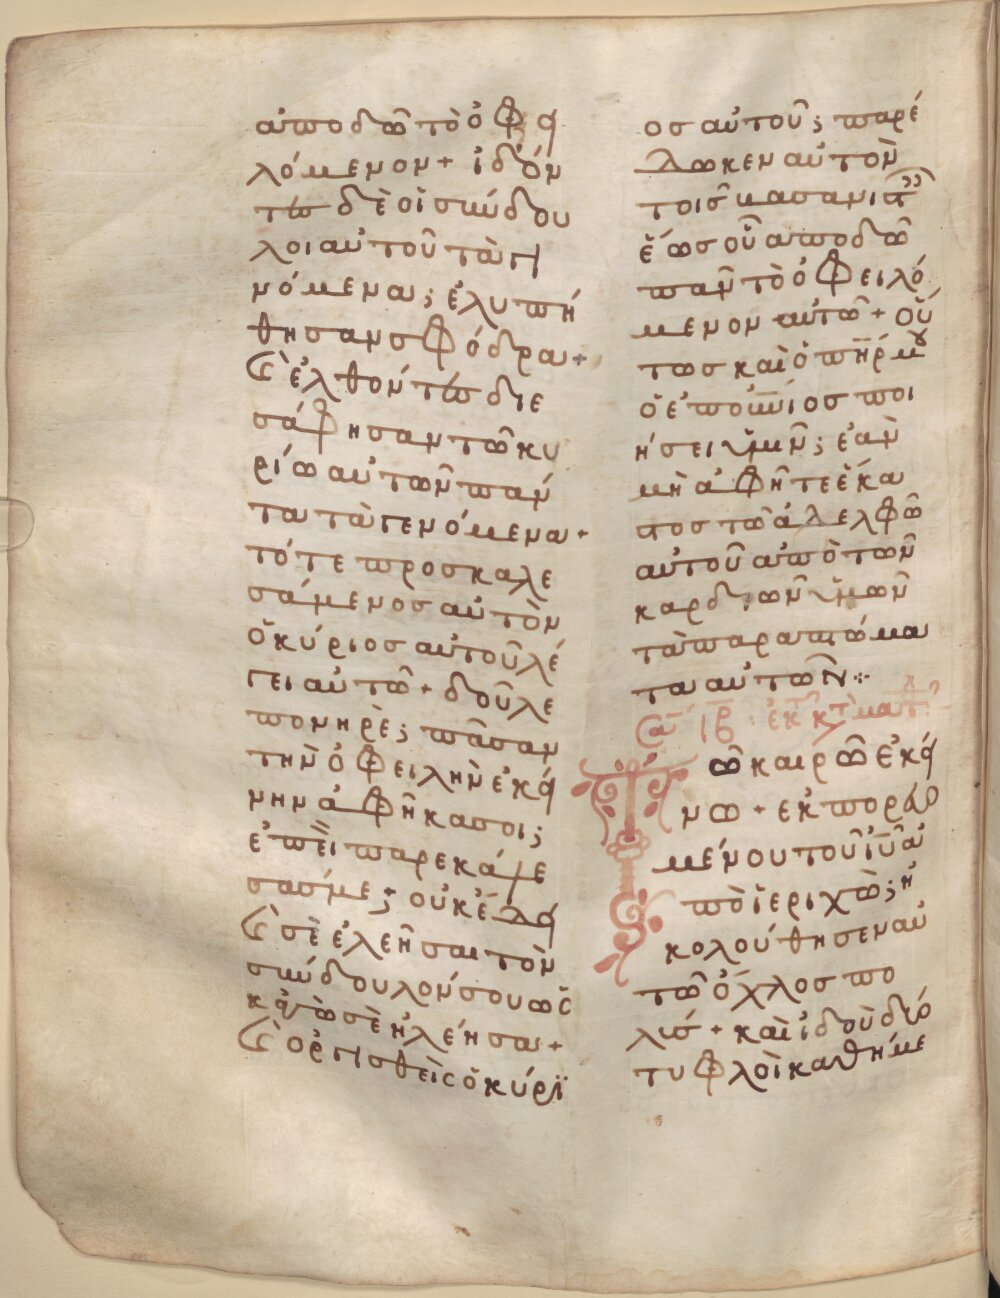 ἀποδῶ τὸ ὀφει
λόμενον + ἰδόν
τες δὲ οἱ σύνδου
λοι αὐτοῦ τὰ γε
νόμενα ; ἐλυπή
θησαν σφόδρα +
Καὶ ἐλθόντες διε
σάφησαν τῶ κυ
ρίω αὐτῶν πάν
τα τὰ γενόμενα +
τότε προσκαλε
σάμενος αὐτὸν
ὁ κύριος αὐτοῦ λέ
γει αὐτῶ + δοῦλε
πονηρὲ ; πᾶσαν
τὴν ὀφειλὴν ἐκεί
νην ἀφῆκα σοι ;
ἐπεὶ παρεκάλε
σάς με ; οὐκ ἔδει
Καὶ σὲ ἐλεῆσαι τὸν
σύνδουλόν σου ὡς
κἀγὼ σὲ ἠλέησα +
Καὶ ὀργισθεὶς ὁ κύρϊ
ος αὐτοῦ ; παρέ
δωκεν αὐτὸν
τοῖς βασανιστ
ἕως οὗ ἀποδῶ
πᾶν τὸ ὀφειλό
μενον αὐτῶ + οὕ
τως καὶ ὁ πηρ μου
ὁ ἐπουνιος ποι
ήσει ὑμῖν ; ἐὰν
μὴ ἀφῆτε ἕκα
στος τῶ ἀδελφῶ
αὐτοῦ ἀπὸ τῶν
καρδιῶν ὑμῶν
τὰ παραπτώμα
τα αὐτῶν ⁘
Σα ιβ : ἐκ κτ ματ
Τῶ καιρῶ ἐκεί
νω + ἐκπορευο
μένου τοῦ ιυ ἀ
πὸ ἱεριχὼ ; ἠ
κολούθησεν αὐ
τῶ ὄχλος πο
λύς + καὶ ἰδοὺ δύο
τυφλοὶ καθήμε